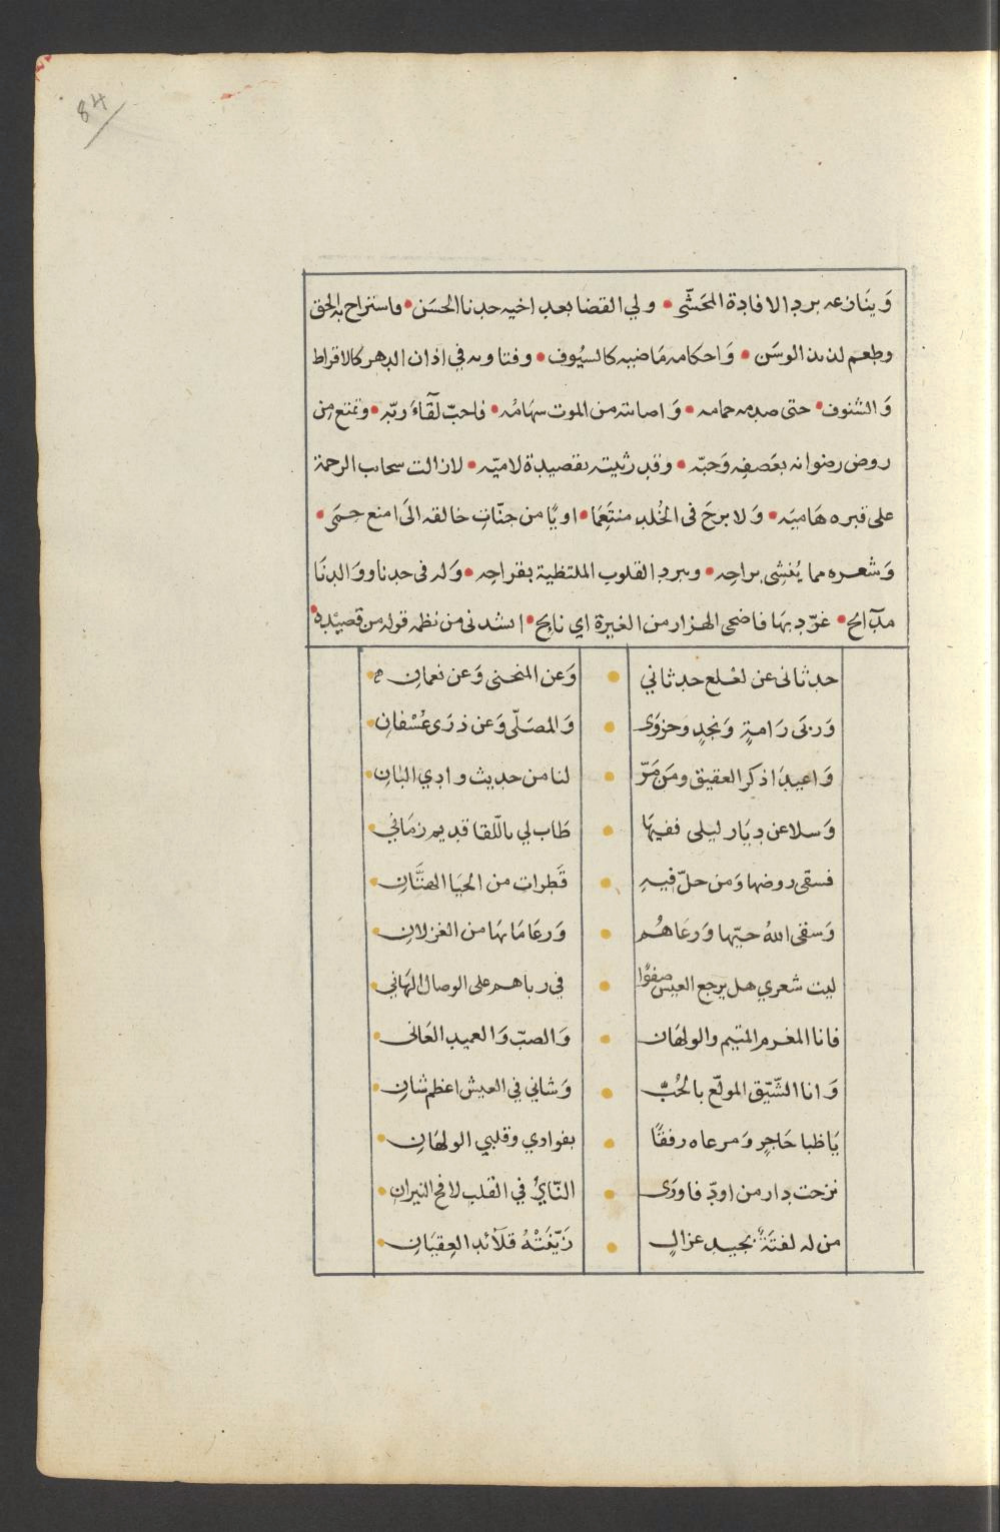 84
وَينَازعه برد الافادة المحَشّى • ولي القضا بعد اخيه جدنا الحسَن • واستراح به الحق
وطعم لذيذ الوسَن • وَاحكامه مَاضيه كالسيُوف • وفتاويه في اذان الدهر كالاقراط
وَالشنوف • حتى صدمه حمامه • وَاصابته من الموت سهَامُه • فاحبّ لقَآءَ ربّه • وتمتع من
روض رضوانه بعَصفِه وَحبّه • وقد رثيته بقصيدة لاميّه • لازالت سحاب الرحمة
على قبره هَاميَه • وَلا برحَ فى الخُلد منتَعِمَا • اويًا من جنّاتِ خالقه الَى امنع حمَى •
وَشعره مما يُنشِى براحِه • ويبرد القلوب الملتظية بقراحِه • وَله فى جدنا ووَالدنَا
مدَآئح • غرّد بهَا فاضحى الهزار من الغيرة اي نايح • انشدنى من نظمه قوله من قصيدة •
حدثانى عن لعْلع حدثاني • وَعن المنحنى وَعن نعمانِ •
وَربَى رَامةٍ وَنجدٍ وحزوَى • وَالمصَلّى وَعن ذرَى عُسْفانِ •
وَاعيدَا ذكر العقيق ومَن مَرّ • لنا من حديث وادي البَانِ •
وَسلا عن دِيَار ليلى ففيهَا • طَاب لي باللّقا قديم زمَاني •
فسقى روضها وَمن حلّ فيهِ • قَطرات من الحيَا الهتَّانِ •
وَسقى اللهُ حيّها وَرعَاهُم • وَرعَا مَا بهَا من الغزلانِ •
ليت شعري هل يرجع العيش صفوًا • في رباهم على الوصال الهَاني •
فانا المغرم المتيم والولهَان • وَالصبّ وَالعميد العَانى •
وَانا الشّيّق المولّع بالحُبّ • وَشاني في العيش اعظم شانِ •
يَا ظبا حَاجِرٍ وَمرعاه رفقًا • بفوادي وقلبي الولهَانِ •
نزحت دار من اودّ فاورَى • النّايُ في القلب لافح النيرانِ •
من له لفتَةٌ بجيد غزالٍ • زَيّفَتْهُ قلَآئد العِقيَانِ •